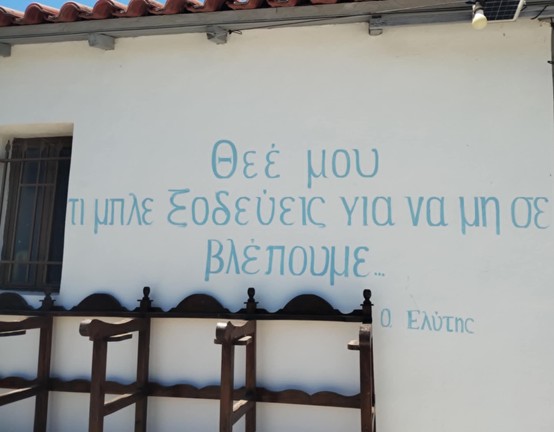 Θεέ μου
τι μπλε ξοδεύεις για να μη σε
βλέπουμε...
Ο. Ελύτης